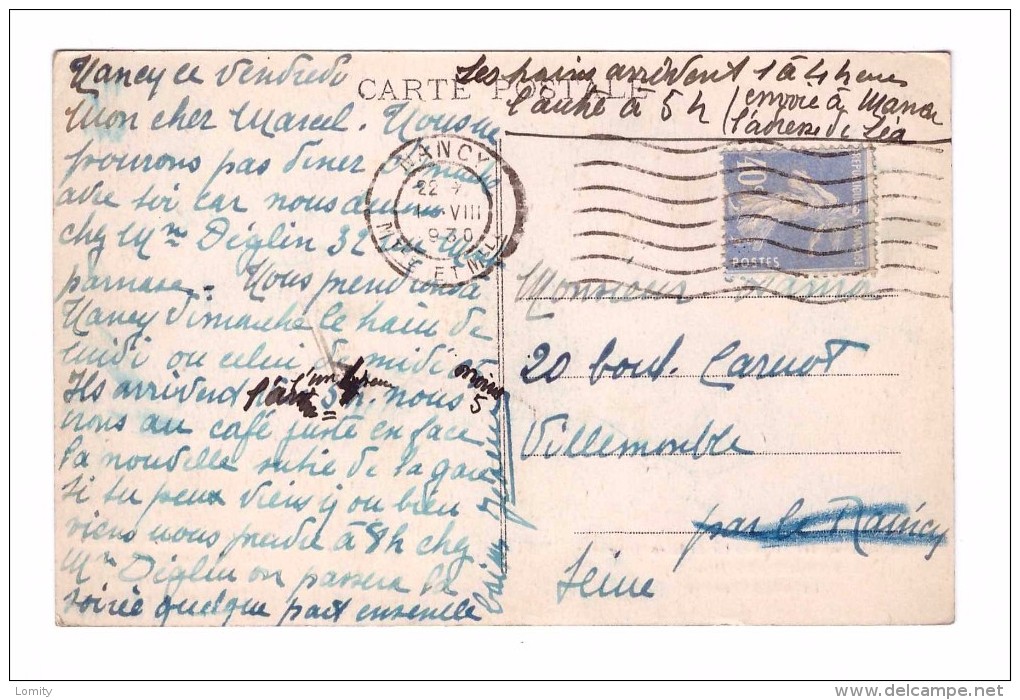 CARTE POSTALE
Les trains arrivent 1 à 4 heures
l'autre à 5 h / envoie à Maman
l'adresse de Léa
Nancy ce Vendredi
Mon cher Marcel. Nous ne
pourons pas diner
soir car nous
chez Mme Diglin 32
parnase. Nous prendrons à
Nancy Dimanche le train de
midi ou celui de midi
Ils arrivent 5h. nous
irons au café juste en face
la nouvelle sortie de la gare
si tu peux viens y ou bien
viens nous prendre à 8h chez
Mme Diglin on passera la
soirée quelque part ensemble
NANCY
22
VIII
1930
MTHE ET MLLE
40c
POSTES
Monsieur
20 boul. Carnot
Villemomble
par le Raincy
Seine
Lomity
delcampe.net